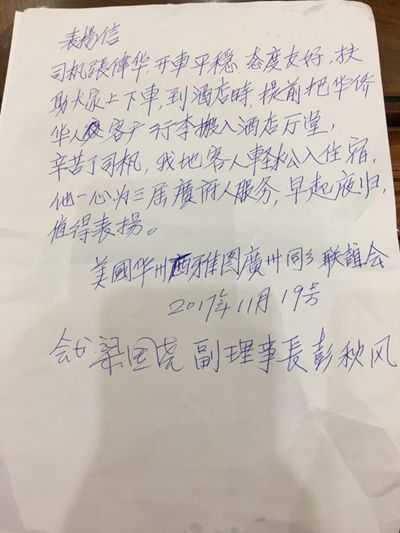 表揚信
司机張偉华,开車平穏、态度友好,扶
助大家上下車,到酒店時,提前把华侨
华人客户行李搬入酒店厅堂,
辛苦了司机,我地客人軽松入住宿,
他一心为三届廣府人服务,早起夜归,
值得表揚。
美國华州西雅图廣州同乡联誼会
2017年11月19号
梁国尧 副理事長彭秋风